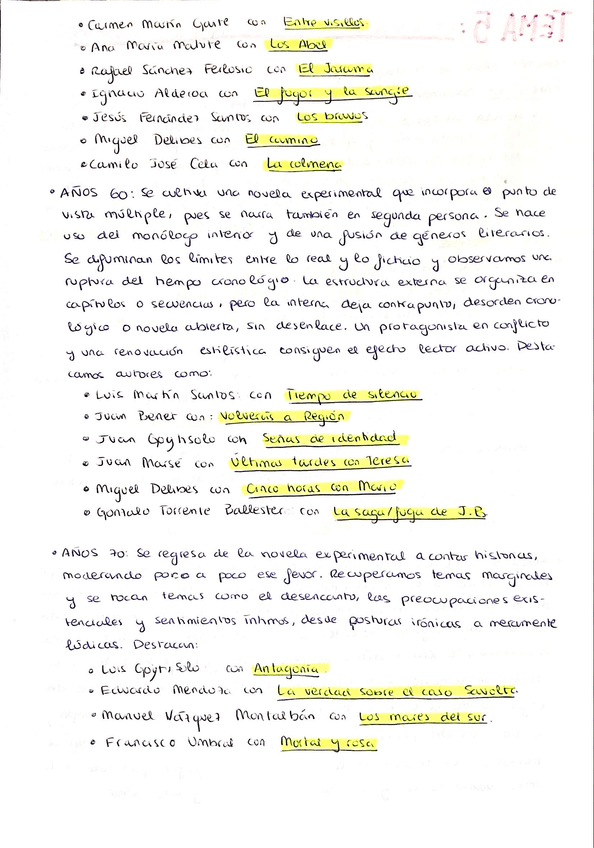 TEMA 5:
• Carmen Martín Gaite con Entre visillos
• Ana María Matute con Los Abel
• Rafael Sánchez Ferlosio con El Jarama
• Ignacio Aldecoa con El fugor y la sangre
• Jesús Fernández Santos con Los bravos
• Miguel Delibes con El camino
• Camilo José Cela con La colmena
• AÑOS 60: Se cultiva una novela experimental que incorpora el punto de
vista múltiple, pues se narra también en segunda persona. Se hace
uso del monólogo interior y de una fusión de géneros literarios.
Se difuminan los límites entre lo real y lo ficticio y observamos una
ruptura del tiempo cronológico. La estructura externa se organiza en
capítulos o secuencias, pero la interna deja contrapunto, desorden crono-
lógico o novela abierta, sin desenlace. Un protagonista en conflicto
y una renovación estilística consiguen el efecto lector activo. Desta-
camos autores como:
• Luis Martín Santos: con Tiempo de silencio
• Juan Benet con: Volverás a Región
• Juan Goytisolo con Señas de identidad
• Juan Marsé con Últimas tardes con Teresa
• Miguel Delibes con Cinco horas con Mario
• Gonzalo Torrente Ballester con La saga/fuga de J.B
• AÑOS 70: Se regresa de la novela experimental a contar historias,
moderando poco a poco ese fevor. Recuperamos temas marginales
y se tocan temas como el desencanto, las preocupaciones exis-
tenciales y sentimientos íntimos, desde posturas irónicas a meramente
lúdicas. Destacan:
• Luis Goytisolo con Antagonía.
• Eduardo Mendoza con La verdad sobre el caso Savolta.
• Manuel Vázquez Montalbán con Los mares del sur.
• Francisco Umbral con Mortal y rosa